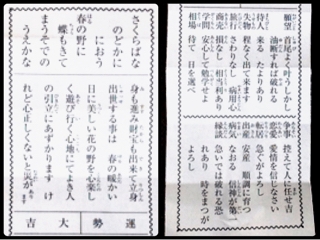 さくらばな
のどかに
におう
春の野に
蝶もきて
まうそでの
うえかな
運勢 大吉
身も進み財宝も出来て立身
出世する事は 春の暖かい
日に美しい花の野を心楽し
く遊び行く心地にてよき人
の引立にあずかります け
れど心正しくないと災があ
ります
願望 首尾よく叶うしかし
油断すれば破れる
待人 来る たよりあり
失物 程なく出て来ます
旅行 さわりなし 病用心
商売 損なし 相当利あり
学問 安心して勉学せよ
相場 待て 日を選べ
争事 控えて人に任せ吉
恋愛 愛情を信じなさい
転居 急ぐがよし
出産 安産 順調に育つ
病気 なおる 信神が第一
縁談 急いでは破れる恐
れあり 時をまつが
よろし